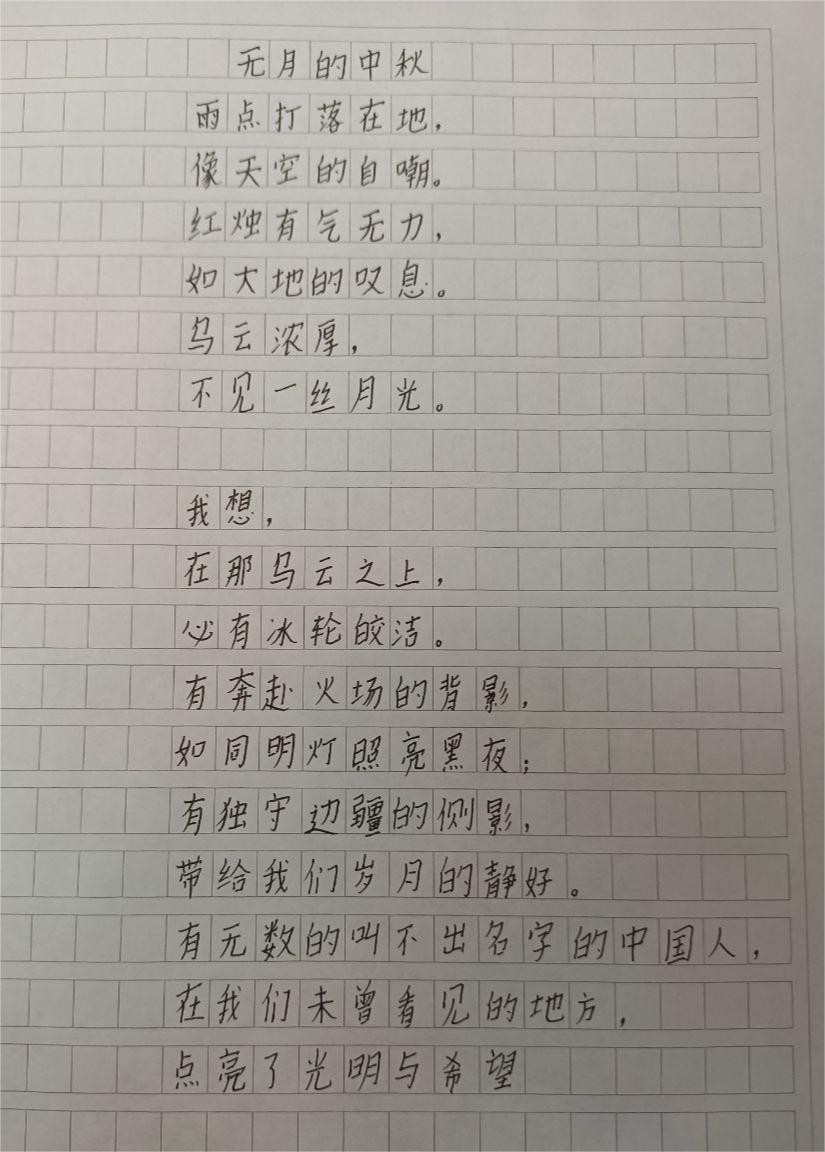 无月的中秋
雨点打落在地，
像天空的自嘲。
红烛有气无力，
如大地的叹息。
乌云浓厚，
不见一丝月光。
我想，
在那乌云之上，
必有冰轮皎洁。
有奔赴火场的背影，
如同明灯照亮黑夜；
有独守边疆的侧影，
带给我们岁月的静好。
有无数的叫不出名字的中国人，
在我们未曾看见的地方，
点亮了光明与希望